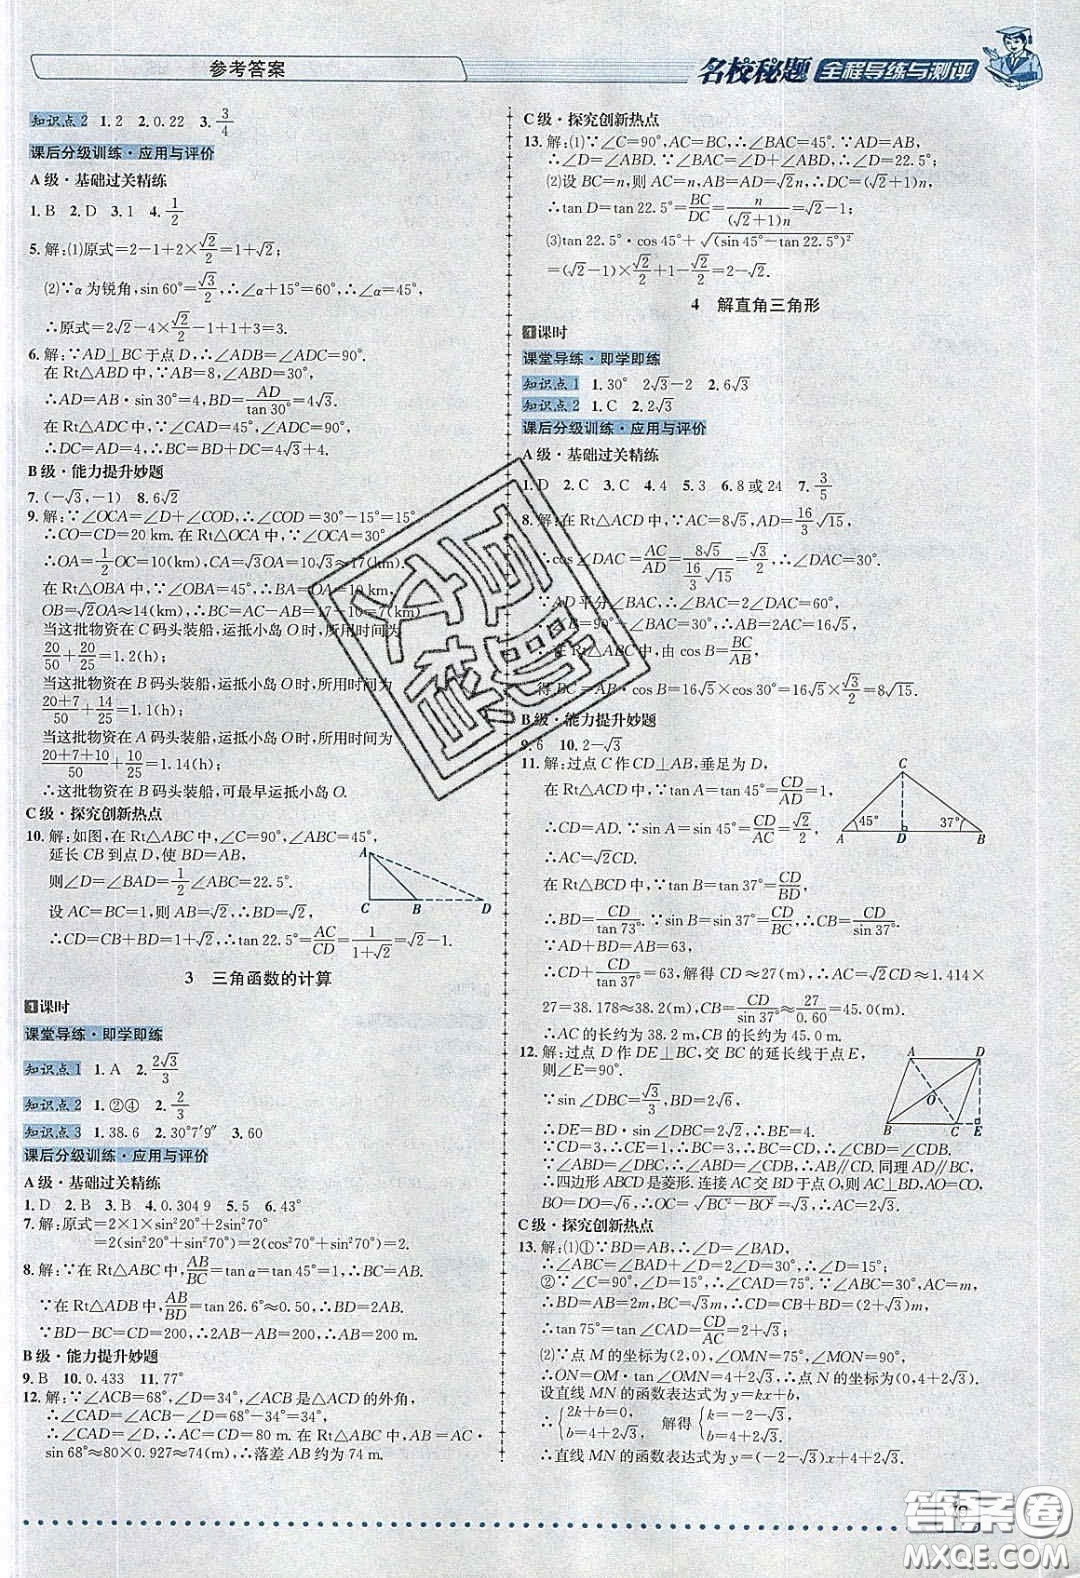 参考答案
名校秘题 全程导练与测评
知识点2 1.2 2.0.22 3.3/4
课后分级训练·应用与评价
A级·基础过关精练
1.B 2.D 3.1 4.1/2
5.解:(1)原式=2-1+2×√2/2=1+√2;
(2)∵α为锐角,sin 60°=√3/2,∴α+15°=60°,∴α=45°,
∴原式=2√2-4×√2/2-1+1=0.
6.解:∵AD⊥BC于点D,∴∠ADB=∠ADC=90°.
在Rt△ABD中,∵AB=8,∠ABD=30°,
∴AD=AB·sin 30°=4,BD=AD/tan 30°=4√3.
在Rt△ADC中,∵∠CAD=45°,∠ADC=90°,
∴DC=AD=4,∴BC=BD+DC=4√3+4.
B级·能力提升妙题
7.(-√3,-1) 8.6√2
9.解:∵∠OCA=∠D+∠COD,∴∠COD=30°-15°=15°,
∴CO=CD=20 km.在Rt△OCA中,∵∠OCA=30°,
∴OA=1/2OC=10(km),CA=√3OA=10√3≈17(km).
在Rt△OBA中,∵∠OBA=45°,∴BA=OA=10(km),
OB=√2OA≈14(km),∴BC=AC-AB=17-10=7(km).
当这批物资在C码头装船,运抵小岛O时,所用时间为
20/50+20/25=1.2(h);
当这批物资在B码头装船,运抵小岛O时,所用时间为
20+7/50+14/25=1.1(h);
当这批物资在A码头装船,运抵小岛O时,所用时间为
20+7+10/50+10/25=1.14(h);
∴这批物资在B码头装船,可最早运抵小岛O.
C级·探究创新热点
10.解:如图,在Rt△ABC中,∠C=90°,∠ABC=45°,
延长CB到点D,使BD=AB,
则∠D=∠BAD=1/2∠ABC=22.5°.
设AC=BC=1,则AB=BD=√2.
∴CD=CB+BD=1+√2,∴tan 22.5°=AC/CD=1/1+√2=√2-1.
A
C B D
3 三角函数的计算
1课时
课堂导练·即学即练
知识点1 1.A 2.2√3/3
知识点2 1.②④ 2.2/3
知识点3 1.38.6 2.30°7′9″ 3.60
课后分级训练·应用与评价
A级·基础过关精练
1.D 2.B 3.B 4.0.304 9 5.5 6.43°
7.解:原式=2×1×sin²20°+2sin²70°
=2(sin²20°+sin²70°)=2(sin²20°+cos²20°)=2.
8.解:∵在Rt△ABC中,AB/BC=tanα=tan 45°=1,∴BC=AB.
∵在Rt△ADB中,AB/BD=tan 26.6°≈0.50,∴BD=2AB.
∵BD-BC=CD=200,∴2AB-AB=200,∴AB=200 m.
B级·能力提升妙题
9.B 10.0.433 11.77°
12.解:∵∠ACB=68°,∠D=34°,∠ACB是△ACD的外角,
∴∠CAD=∠ACB-∠D=68°-34°=34°,
∴∠CAD=∠D,∴AC=CD=80 m.在Rt△ABC中,∠ABC=90°,∴AB=AC·
sin 68°≈80×0.927≈74(m),∴落差AB约为74 m.
C级·探究创新热点
13.解:(1)∵∠C=90°,AC=BC,∴∠BAC=45°.∵AB=BD,
∴∠D=∠ABD.∵∠BAC=∠D+∠ABD,∴∠D=22.5°;
(2)设BC=n,则AC=n,AB=AD=√2n,∴DC=(√2+1)n,
∴tan D=tan 22.5°=BC/DC=n/(√2+1)n=√2-1;
(3)tan 22.5°·cos 45°+√(sin 45°-tan 22.5°)²
=(√2-1)×√2/2+√2/2-√2+1=2-√2.
4 解直角三角形
1课时
课堂导练·即学即练
知识点1 1.30° 2√3-2 2.6√3
知识点2 1.C 2.2√3
课后分级训练·应用与评价
A级·基础过关精练
1.D 2.C 3.C 4.4 5.3 6.8或24 7.3/5
8.解:在Rt△ACD中,∵AC=8√5,AD=16/3√15,
∴cos∠DAC=AC/AD=8√5/(16/3√15)=√3/2,∴∠DAC=30°.
∵AD平分∠BAC,∴∠BAC=2∠DAC=60°,
∴∠B=90°-∠BAC=30°,∴AB=2AC=16√5,
∴在Rt△ABC中,由cos B=BC/AB,
得BC=AB·cos B=16√5×cos 30°=16√5×√3/2=8√15.
B级·能力提升妙题
9.6 10.2-√3
11.解:过点C作CD⊥AB,垂足为D,
在Rt△ACD中,∵tan A=tan 45°=CD/AD=1,
∴CD=AD.∵sin A=sin 45°=CD/AC=√2/2,
∴AC=√2CD.
在Rt△BCD中,∵tan B=tan 37°=CD/BD,
∴BD=CD/tan 73°.∵sin B=sin 37°=CD/BC,∴CB=CD/sin 37°.
∵AD+BD=AB=63,
∴CD+CD/tan 37°=63,解得CD≈27(m),∴AC=√2CD≈1.414×
27=38.178≈38.2(m),CB=CD/sin 37°≈27/0.60=45.0(m).
∴AC的长约为38.2 m,CB的长约为45.0 m.
C
45° 37°
A D B
12.解:过点D作DE⊥BC,交BC的延长线于点E,
则∠E=90°.
∵sin∠DBC=√3/3,BD=2√6,
∴DE=BD·sin∠DBC=2√2,∴BE=4.
∵CD=3,∴CE=1,∴BC=3,∴BC=CD,∴∠DBC=∠CDB.
∵∠ABD=∠DBC,∴∠ABD=∠CDB,∴AB∥CD.同理AD∥BC,
∴四边形ABCD是菱形.连接AC交BD于点O,则AC⊥BD,AO=CO,
BO=DO=√6,∴OC=√BC²-BO²=√3,∴AC=2√3.
A D
O
B C E
C级·探究创新热点
13.解:(1)①∵BD=AB,∴∠D=∠BAD,
∴∠ABC=∠BAD+∠D=2∠D=30°,∴∠D=15°;
②∵∠C=90°,∠D=15°,∴∠CAD=75°.∵∠ABC=30°,AC=m,
∴BD=AB=2m,BC=√3m,∴CD=CB+BD=(2+√3)m,
∴tan 75°=tan∠CAD=CD/AC=2+√3;
(2)∵点M的坐标为(2,0),∠OMN=75°,∠MON=90°,
∴ON=OM·tan∠OMN=4+2√3,∴点N的坐标为(0,4+2√3).
设直线MN的函数表达式为y=kx+b,
∴{2k+b=0, b=4+2√3, 解得{k=-2-√3, b=4+2√3.
∴直线MN的函数表达式为y=(-2-√3)x+4+2√3.
答案卷
MXQE.COM